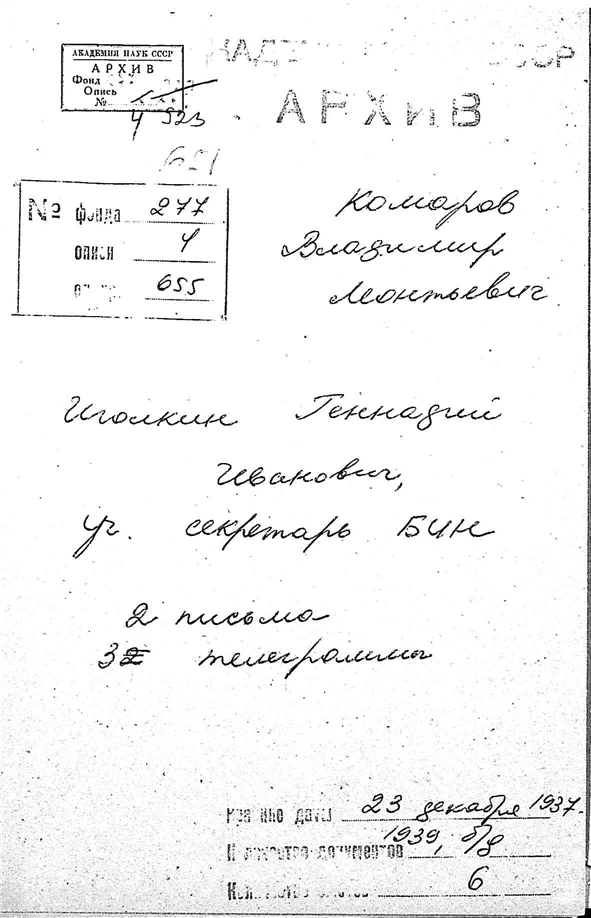 АКАДЕМИЯ НАУК СССР
АРХИВ
Фонд
Опись
№
4 523
СССР
АРХИВ
651
№ фонда 277
описи 4
655
Комаров
Владимир
Леонтьевич
Иголкин Геннадий
Иванович,
уч. секретарь БИН
2 письма
3 телеграммы
Крайние даты 23 декабря 1937.
1939, б/д
Количество документов
Количество листов 6